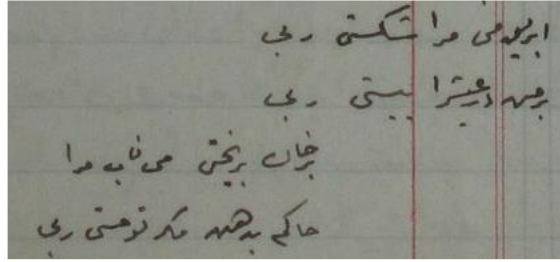 ابریق می مرا شکستی ربی
برمن در عیشرا ببستی ربی
برخاک بریختی می ناب مرا
خاکم بدهن مگر تو مستی ربی